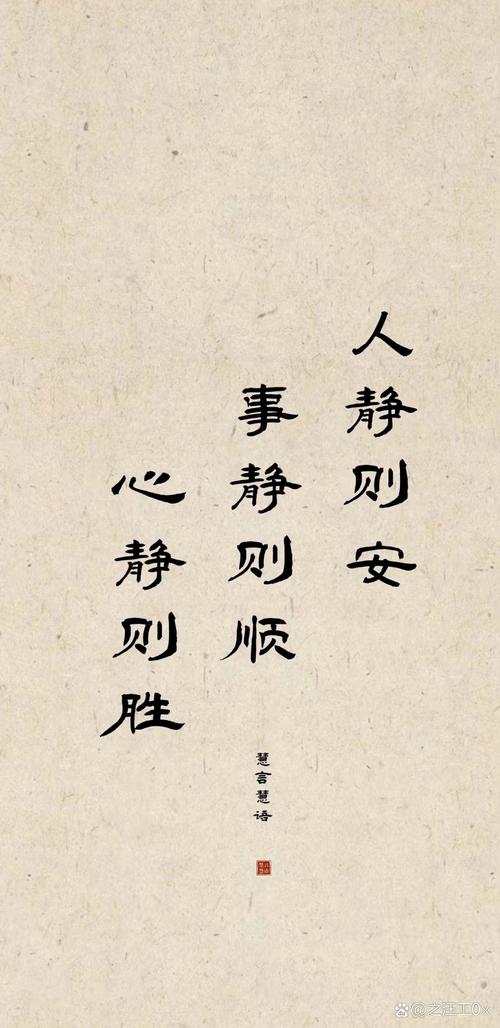 人静则安
事静则顺
心静则胜
慧言慧语
@之汪工0x